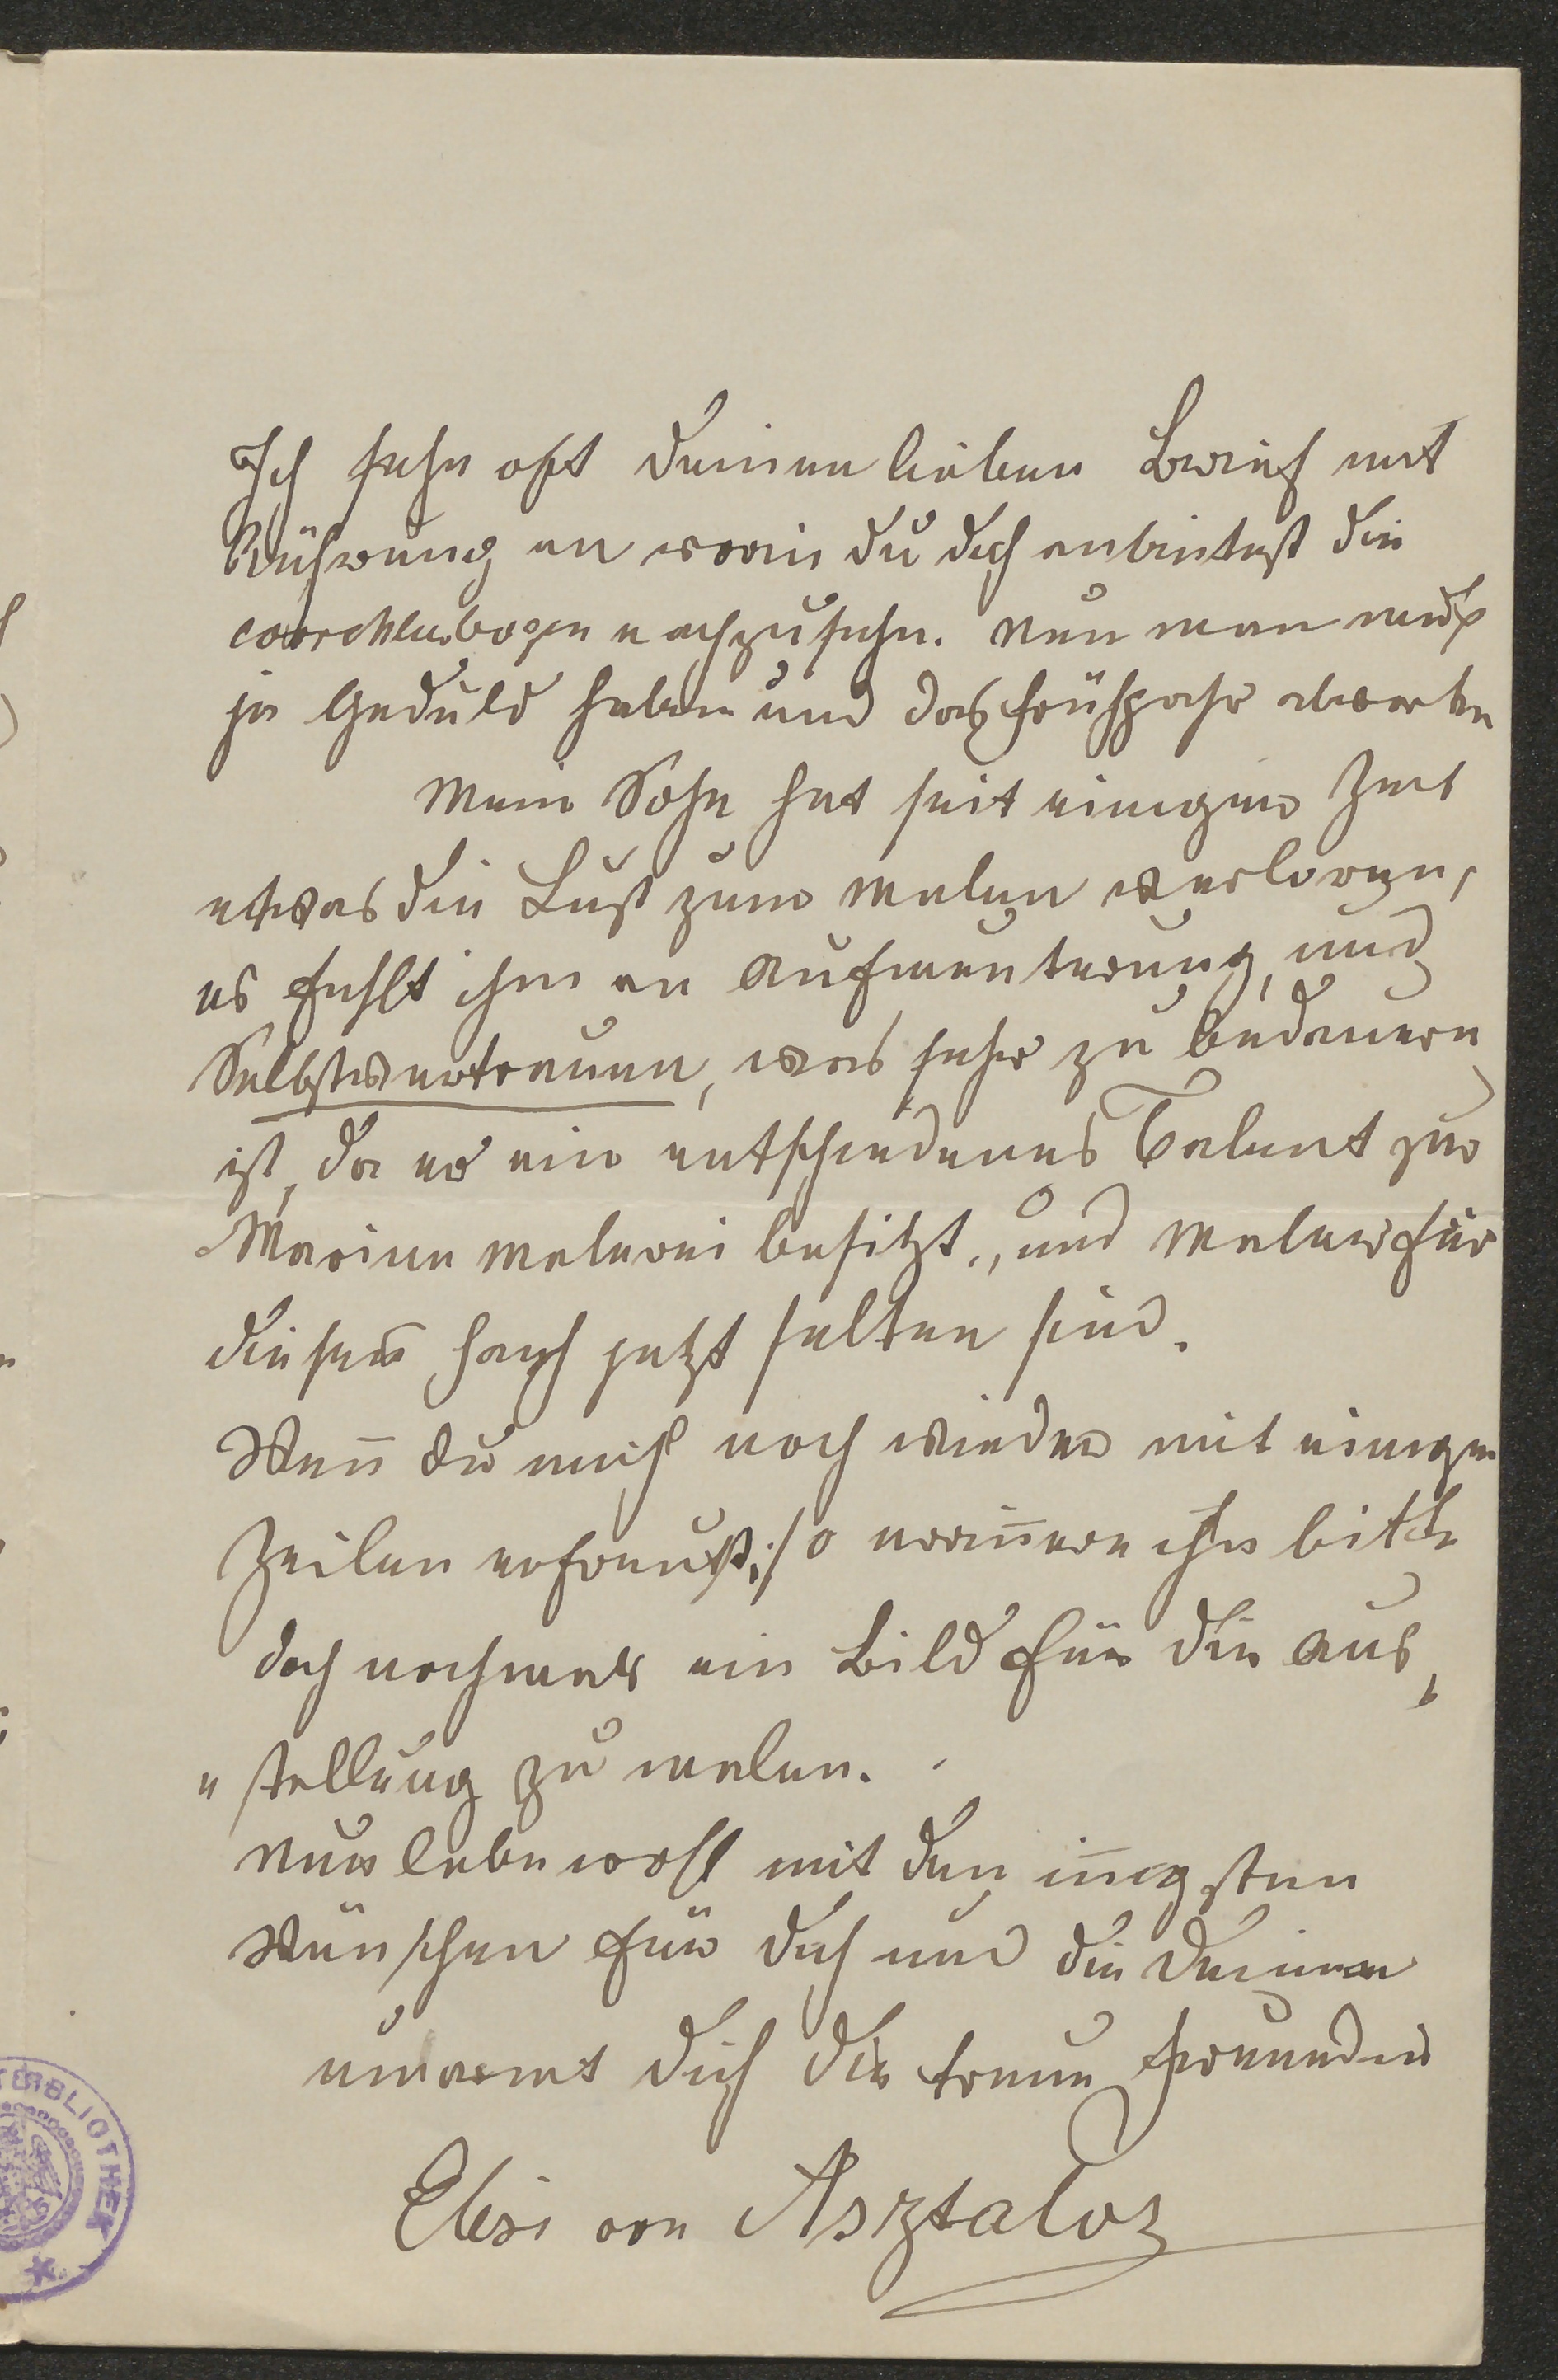 Ich sehe oft deinen lieben Brief mit
Rührung an worin du dich anbietest die
nachzusehn. Nun man muß
ja Geduld haben und das Frühjahr abwarten
Mein Sohn hat seit einiger Zeit
etwas die Lust zum malen verloren,
es fehlt ihm an Aufmunterung, und
Selbstvertrauen, was sehr zu bedauern
ist, da er ein entschiedenes Talent zur
Marine malerei besitzt, und Maler für
dieses Fach jetzt selten sind.
Wen̄ du mich noch wieder mit einigen
Zeilen erfreust, so erin̄ere ihn bitte
doch nochmals ein Bild für die Aus„
„stellung zu malen.
Nun lebe wohl mit den in̄igsten
Wünschen für dich und die Deinen
umarmt dich die treue Freundin
von Asztalos
TERBLIOTHEK